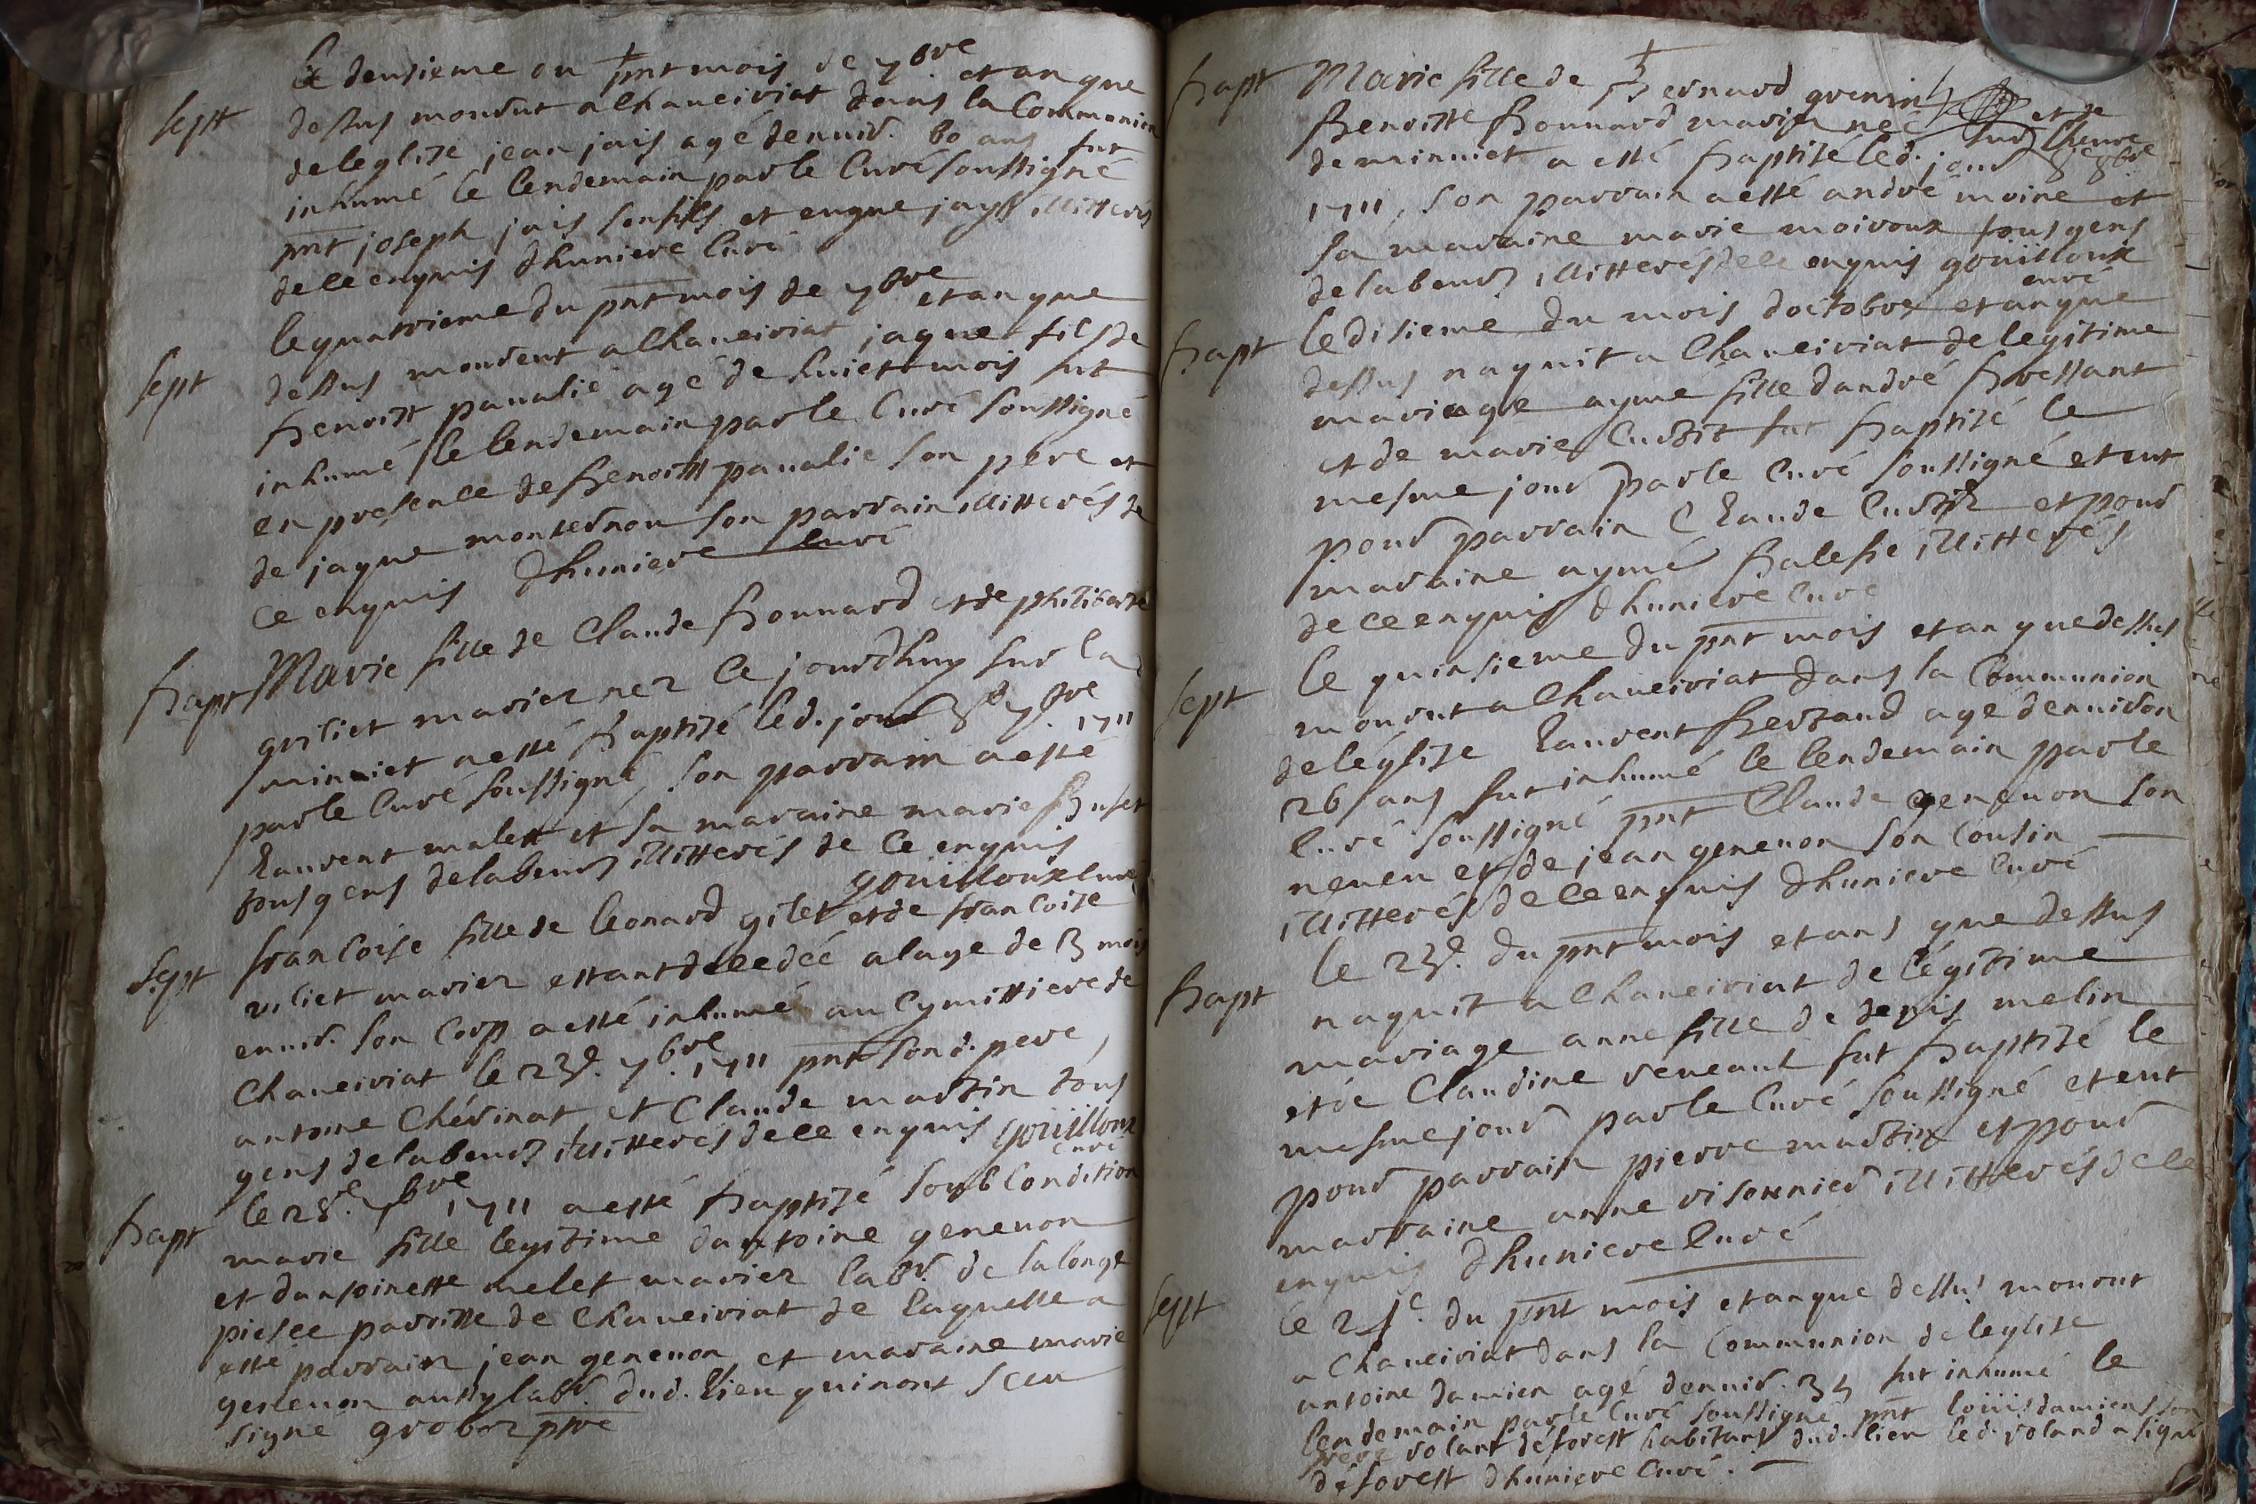 Le deusieme du pnt mois de 7bre et an que
sept dessus mourut a Chaveiriat dans la Communion
de leglize jean jais agé denuir. 60 ans fut
inhumé le lendemain par le Curé soussigné
pnt joseph jais son fils et eugne jays illitterés
de ce enquis Dhuniere Curé
le quatrieme du pnt mois de 7bre et an que
sept dessus mourut a Chaveiriat jaque fils de
Benoist panalie agé de huict mois fut
inhumé le lendemain par le Curé soussigné
en presence de Benoist panalie son pere et
de jaque monternou son parrain illitterés de
ce enquis Dhuniere Curé
bapt Marie fille de Claude Bonnard et de philiberte
griliet mariez nez ce jourdhuy sur la
miniet a esté baptizé led. jour 8e 7bre 1711
par le Curé soussigné, son parrain a esté
Laurent malett et sa maraine marie Buset
tous gens de labeur illitterés de ce enquis
gouilloux Curé
Sept francoise fille de leonard gilet et de francoise
viliet mariez estant decedéé a lage de 3 mois
enuir. son Corp a esté inhumé au Cymittiere de
Chaveiriat le 23e. 7bre. 1711 pnt sond. pere,
antoine Chérinat et Claude martin tous
gens de labeur illitterés de ce enquis gouilloux
Curé
bapt le 28e. 7bre 1711 a esté baptizé soub Condition
marie fille legitime dantoine genevon
et dantoinette melet mariez labr. de la longe
piesce parrisse de Chaveiriat de laquelle a
esté parrain jean genevon et maraine marie
genevon aussy labr. dud. lieu qui nont sceu
signé groboz ptre
bapt Marie fille de Bernard grenin et de
Benoiste Bonnard mariez neé sur lheure
de minniet a esté baptizé led. jour 8e 8bre
1711, son parrain a esté andré moine et
sa maraine marie moiroux tous gens
de labeur illitterés de ce enquis gouilloux
curé
bapt le disieme du mois doctobre et an que
dessus naquit a Chaveiriat de legitime
mariage aymé fille dandré Bressant
et de marie Curtit fut baptizé le
mesme jour par le Curé soussigné et eut
pour parrain Claude Curtit et pour
maraine aymé Balese illitterés
de ce enquis Dhuniere Curé
sept le quinsieme du pnt mois et an que dessus
mourut a Chaveiriat dans la Communion
de léglize Laurent Bertaud agé denuiron
26 ans fut inhumé le lendemain par le
Curé soussigné pnt Claude genevon son
neveu et de jean genevon son Cousin
illitterés de ce enquis Dhuniere Curé
le 23e. du pnt mois et ans que dessus
bapt naquit a Chaveiriat de légitime
mariage anne fille de denis melin
et de Claudine veneant fut baptizé le
mesme jour par le Curé soussigné et eut
pour parrain pierre martin et pour
marraine anne visonnier illitterés de ce
enquis Dhuniere Curé
sept le 24e. du pnt mois et an que dessus mourut
a Chaveiriat dans la Communion de leglize
antoine damien agé denuir. 35 fut inhumé le
lendemain par le Curé soussigné pnt louiis damiens son
frere rolant déforest habitans dud. lieu led. roland a signé
déforest Dhuniere Curé.